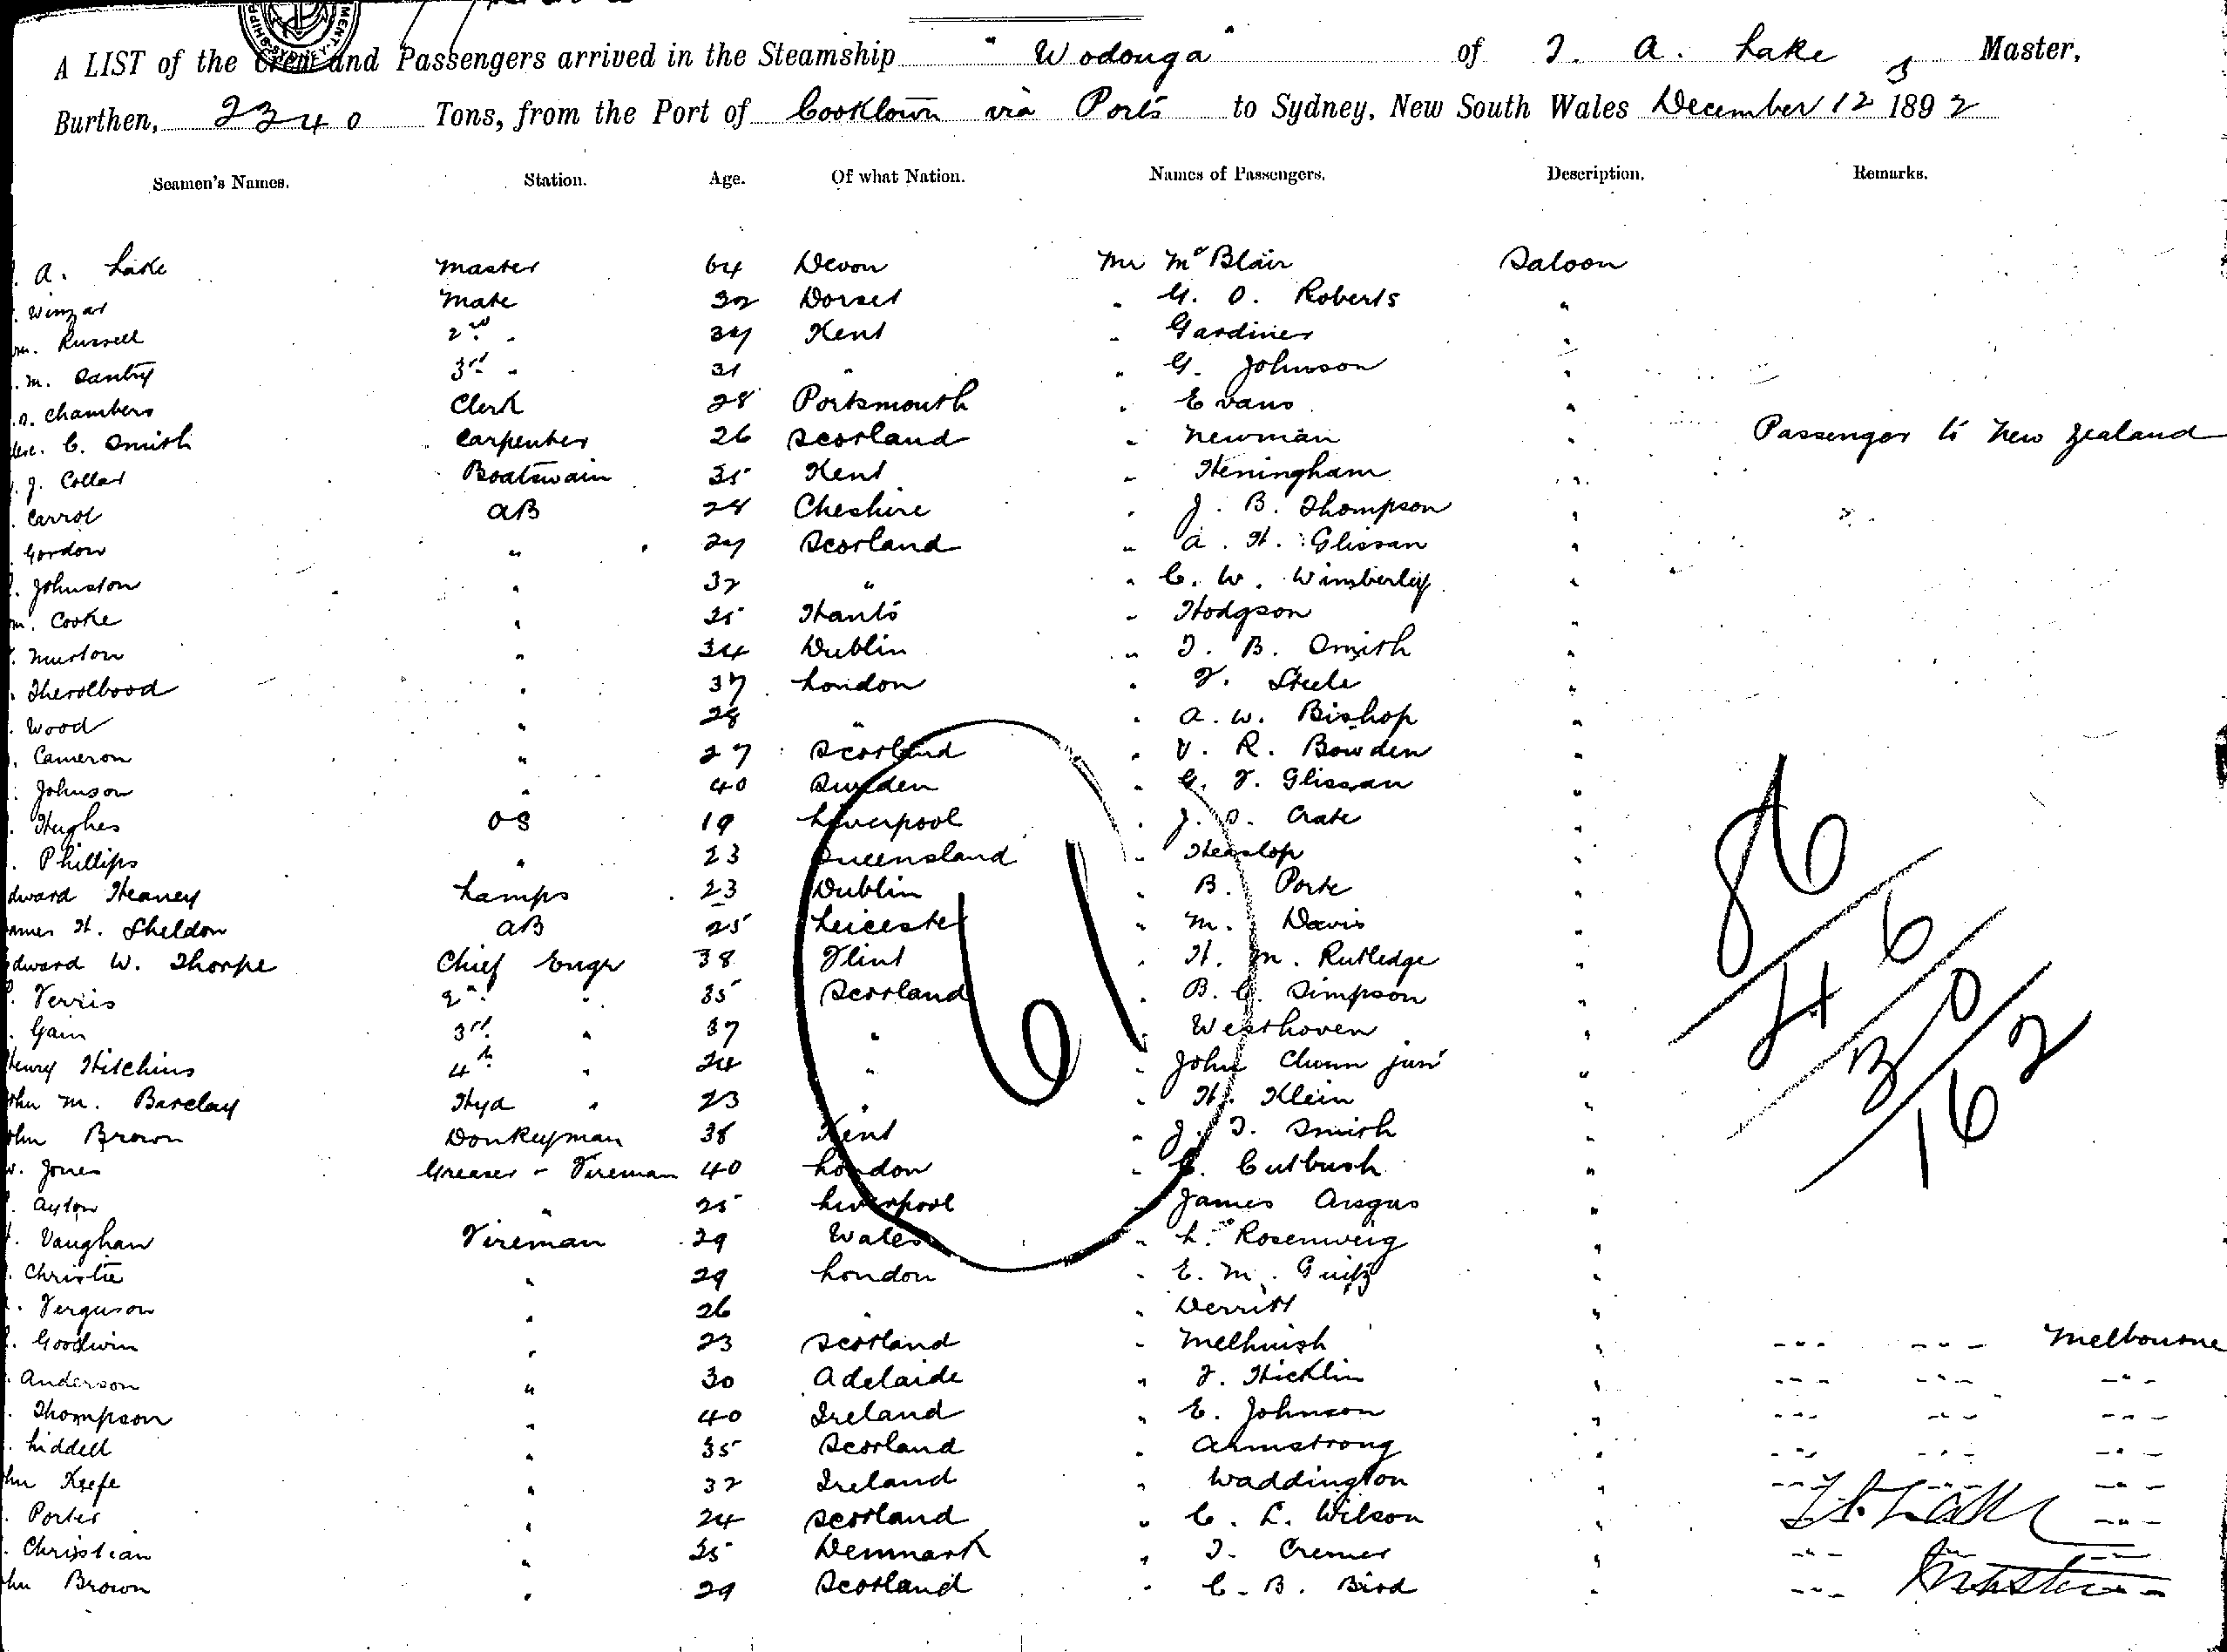 A LIST of the Crew and Passengers arrived in the Steamship "Wodonga" of T. A. Lake Master,
Burthen, 2340 Tons, from the Port of Cooktown via Ports to Sydney, New South Wales December 12 1892 3
Seamen's Names. Station. Age. Of what Nation. Names of Passengers. Description. Remarks.
A. Lake Master 64 Devon Mr McBlair Saloon
Winzar Mate 32 Dorset " G. O. Roberts "
Russell 2nd " 34 Kent " Gardiner "
M. Santry 3rd " 31 " " G. Johnson "
Chambers Clerk 28 Portsmouth " Evans "
C. Smith Carpenter 26 Scotland " Newman " Passenger to New Zealand
J. Collar Boatswain 35 Kent " Heningham "
Carrol AB 28 Cheshire " J. B. Thompson "
Gordon " 24 Scotland " A. H. Glissan "
Johnston " 32 " " C. W. Wimberley "
Cooke " 25 Hants " Hodgson "
Murton " 34 Dublin " T. B. Smith "
" 37 London " F. Steele "
Wood " 28 " " A. W. Bishop "
Cameron " 27 Scotland " V. R. Bowden "
Johnson " 40 Sweden " G. F. Glissan "
Hughes OS 19 Liverpool " J. S. Crate "
Phillips " 23 Queensland " Heaslop "
dward Heaney Lamps 23 Dublin " B. Porte "
ames H. Sheldon AB 25 Leicester " M. Davis "
dward W. Thorpe Chief Engr 38 Flint " H. M. Rutledge "
Ferris 2nd " 35 Scotland " B. C. Simpson "
Gain 3rd " 37 " " Westhoven "
Henry Hitchins 4th " 24 " " John Clunn junr "
ohn M. Barclay Hyd " 23 " " H. Klein "
ohn Brown Donkeyman 38 Kent " J. T. Smith "
Jones Greaser - Fireman 40 London " C. Cutbush "
Ayton " 25 Liverpool " James Angus "
Vaughan Fireman 29 Wales " L. Rosenweig "
Christie " 29 London " E. M. "
Ferguson " 26 " " Derritt "
Goodwin " 23 Scotland " Melhuish " --- --- Melbourne
Anderson " 30 Adelaide " F. Hicklin " --- --- ---
Thompson " 40 Ireland " E. Johnson " --- --- ---
Liddell " 35 Scotland " Armstrong " --- --- ---
hn Keefe " 32 Ireland " Waddington " --- --- ---
Porter " 24 Scotland " C. L. Wilson " ---
Christian " 35 Denmark " T. Cremer " --- --- ---
hn Brown " 29 Scotland " C. B. Bird " --- ---
61
86
46
30
162